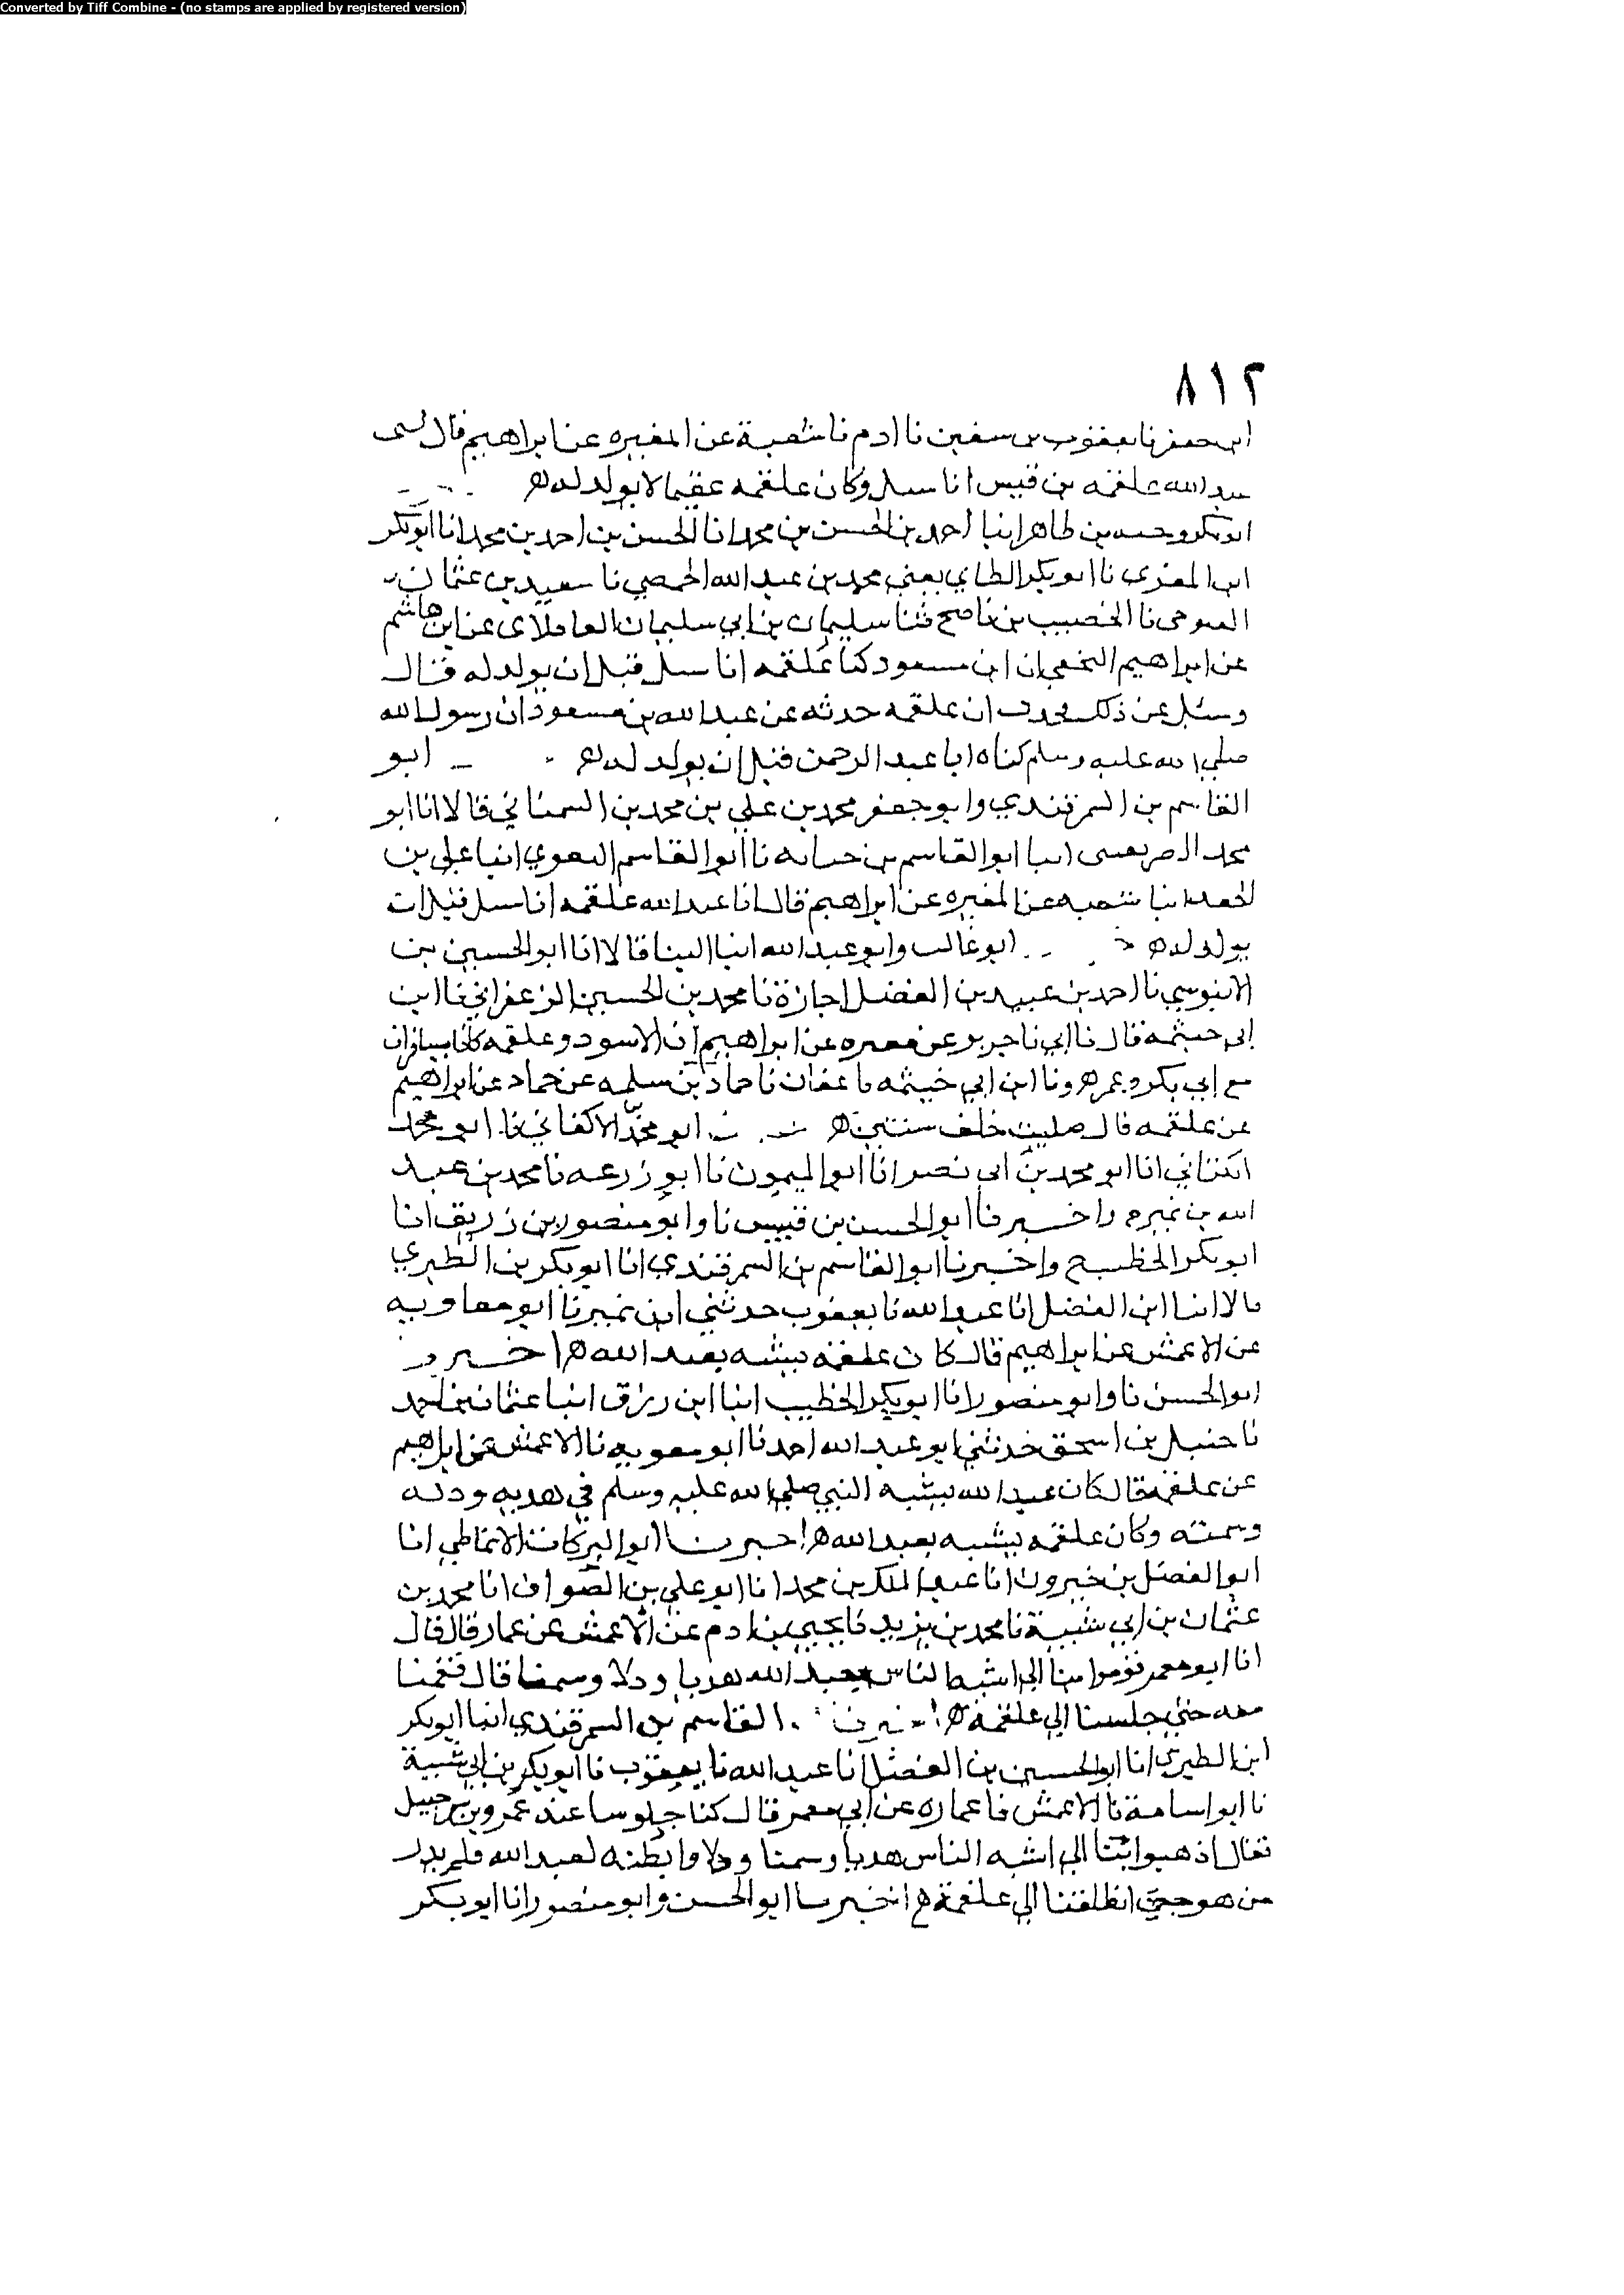 Converted by Tiff Combine - (no stamps are applied by registered version)
٨١٢
ابن جعفر نا يعقوب بن سفين نا ادم نا شعبة عن المغيره عن ابراهيم قال
عبد الله علقمه بن قيس انا سبل وكان علقمه عقيما لا يولد له ه
ابو بكر وجيه بن طاهر انبا احمد بن الحسن بن محمد انا الحسن بن احمد بن محمد انا ابو بكر
ابن المقرى نا ابو بكر الطاي يعني محمد بن عبد الله الحمصي نا سعيد بن عثمان
نا الخصيب بن ناصح ثنا سليمان بن ابي سليمان عن ابن هاشم
عن ابراهيم النخعي ان ابن مسعود كنا علقمه انا سبل قبل ان يولد له فقال
وسئل عن ذلك ان علقمه حدثه عن عبد الله بن مسعود ان رسول الله
صلي الله عليه وسلم كناه ابا عبد الرحمن قبل ان يولد له ه ابو
القاسم بن السمرقندي وابو جعفر محمد بن علي بن محمد بن السمناني قالا انا ابو
محمد انبا ابو القاسم بن حبابه نا ابو القاسم البغوي انبا علي بن
الجعد انبا شعبه عن المغيره عن ابراهيم قال انا عبد الله علقمه انا سبل قبل ان
يولد له ه ابو غالب وابو عبد الله انبا البنا قالا انا ابو الحسين بن
الابنوسي نا احمد بن عبيد بن الفضل اجازة نا محمد بن الحسين الزعفراني نا ابن
ابي خيثمه قال نا ابي نا جرير عن مغيره عن ابراهيم ان الاسود وعلقمه كانا يسافران
مع ابي بكر وعمر ه ونا ابن ابي خيثمه نا عفان نا حماد بن سلمه عن حماد عن ابراهيم
عن علقمه قال صليت خلف سنتين ه ابو محمد الاكفاني نا ابو محمد
الكتاني انا ابو محمد بن ابي نصر انا ابو الميمون نا ابو زرعه نا محمد بن عبد
الله بن نمير ح واخبرنا ابو الحسن بن قبيس نا وابو منصور بن زريق انا
ابو بكر الخطيب ح واخبرنا ابو القاسم بن السمرقندي انا ابو بكر بن الطبري
قالا انبا ابن الفضل انا عبد الله نا يعقوب حدثني ابن نمير نا ابو معاويه
عن الاعمش عن ابراهيم قال كان علقمه يشبه بعبد الله ه اخبرنا
ابو الحسن نا وابو منصور انا ابو بكر الخطيب انبا ابن رزق انبا عثمان بن احمد
نا حنبل بن اسحق حدثني ابو عبد الله احمد نا ابو معويه نا الاعمش عن ابراهيم
عن علقمه قال كان عبد الله يشبه النبي صلي الله عليه وسلم في هديه ودله
وسمته وكان علقمه يشبه بعبد الله ه اخبرنا ابو البركات الانماطي انا
ابو الفضل بن خيرون انا عبد الملك بن محمد انا ابو علي بن الصواف انا محمد بن
عثمان بن ابي شيبة نا محمد بن يزيد نا يحيي بن ادم عن الاعمش عن عمار قال قال
انا ابو معمر قوموا بنا الي اشبه الناس بعبد الله هديا ودلا وسمتا قال فقمنا
معه حتي جلسنا الي علقمة ه القاسم بن السمرقندي انبا ابو بكر
ابن الطبري انا ابو الحسين بن الفضل انا عبد الله نا يعقوب نا ابو بكر بن ابي شيبة
نا ابو اسامة نا الاعمش نا عماره عن ابي معمر قال كنا جلوسا عند عمرو بن شرحبيل
فقال اذهبوا بنا الي اشبه الناس هديا وسمتا ودلا وابطنه لعبد الله فلم ندر
من هو حتي انطلقنا الي علقمة ه اخبرنا ابو الحسن وابو منصور انا ابو بكر